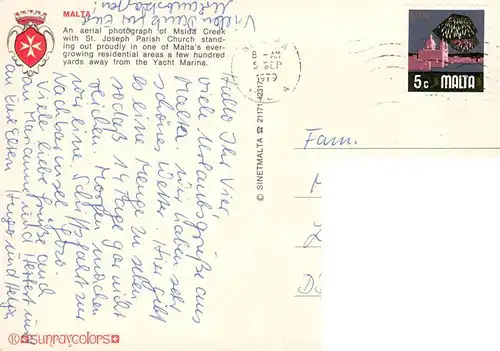 MALTA
An aerial photograph of Msida Creek
with St. Joseph Parish Church stand-
ing out proudly in one of Malta's ever-
growing residential areas a few hundred
yards away from the Yacht Marina.
Vielen Dank für Eure
Urlaubskarten!
8 - AM
5 SEP
1979
MALTA
5c
© SINETMALTA ☎ 21171-42317
Hallo Ihr Vier,
viele Urlaubsgrüße aus
Malta. Wir haben sehr
schönes Wetter. Hier gibt
es eine Menge zu sehen,
sodaß 14 Tage gar nicht
reichen. Morgen machen
wir eine Schiffsfahrt zur
Nachbarinsel Gozo.
Viele liebe Grüße auch
an Marianne und Herbert und
an Eure Eltern
Fam.
® sunraycolors